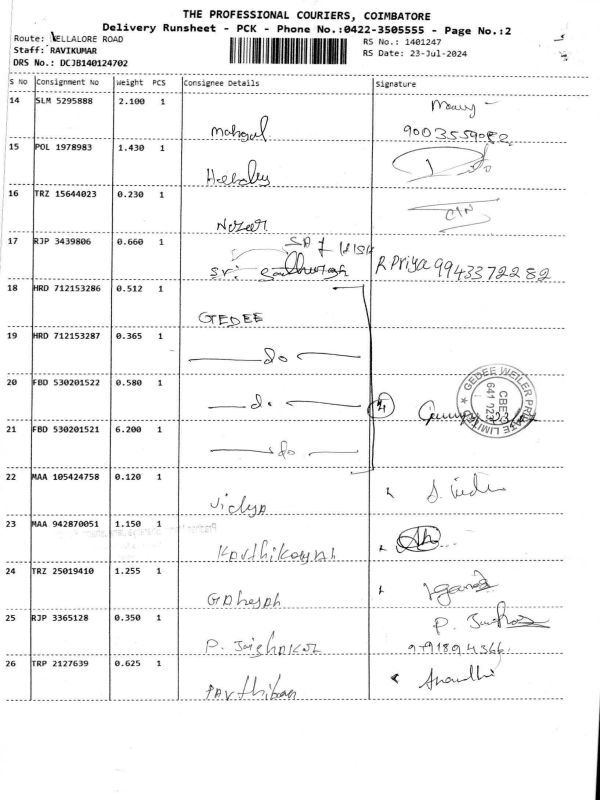 THE PROFESSIONAL COURIERS, COIMBATORE
Delivery Runsheet - PCK - Phone No.:0422-3505555 - Page No.:2
Route: VELLALORE ROAD
Staff: RAVIKUMAR
DRS No.: DCJB140124702
RS No.: 1401247
RS Date: 23-Jul-2024
S No Consignment No Weight PCS Consignee Details Signature
14 SLM 5295888 2.100 1
9003559082
15 POL 1978983 1.430 1
16 TRZ 15644023 0.230 1
Nozeer
17 RJP 3439806 0.660 1
Sri R Priya 9943372282
18 HRD 712153286 0.512 1
GEDEE
19 HRD 712153287 0.365 1
do
20 FBD 530201522 0.580 1
do
GEDEE WEILER PRIVATE LIMITED
CBE
641 023
21 FBD 530201521 6.200 1
do
22 MAA 105424758 0.120 1
Vidya
23 MAA 942870051 1.150 1
Karthikeyan
24 TRZ 25019410 1.255 1
Ganesh
25 RJP 3365128 0.350 1
P.
P. 9791894366
26 TRP 2127639 0.625 1
Parthiban